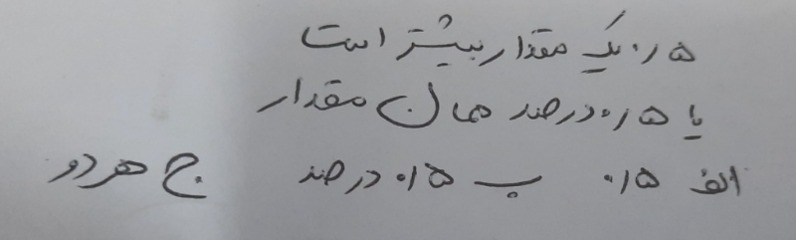 ۰/۵ یک مقدار بیشتر است
یا ۰/۵ درصد همان مقدار
الف ۰/۵ ب ۰/۵ درصد ج هر دو